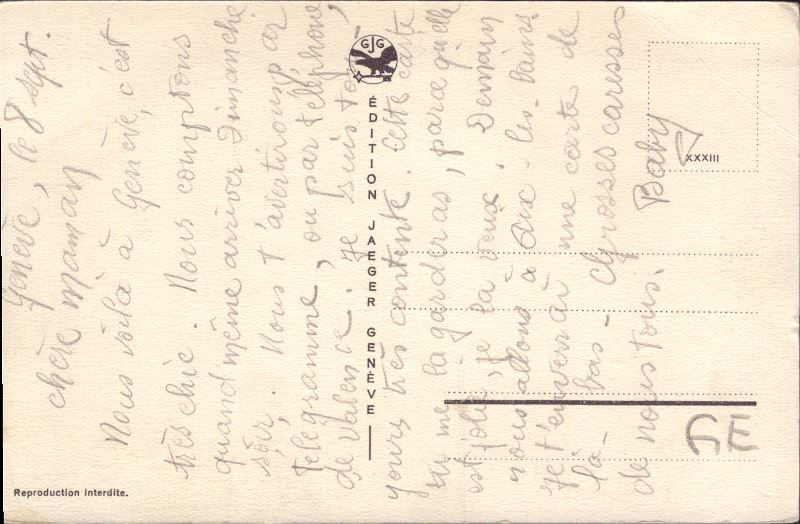 Genève, le 8 sept.
chère maman
Nous voilà à Genève, c'est
très chic. Nous comptons
quand même arriver Dimanche
soir. Nous t'avertirons par
télégramme, ou par téléphone,
de Valence. Je suis tou-
jours très contente. Cette carte
tu me la garderas, parce qu'elle
est jolie, je la veux. Demain
nous allons à Aix-les-bains
je t'enverrai une carte de
là-bas - Grosses caresses
de nous tous.
Baby
GJG
ÉDITION JAEGER GENÈVE
XXXIII
GE
Reproduction interdite.